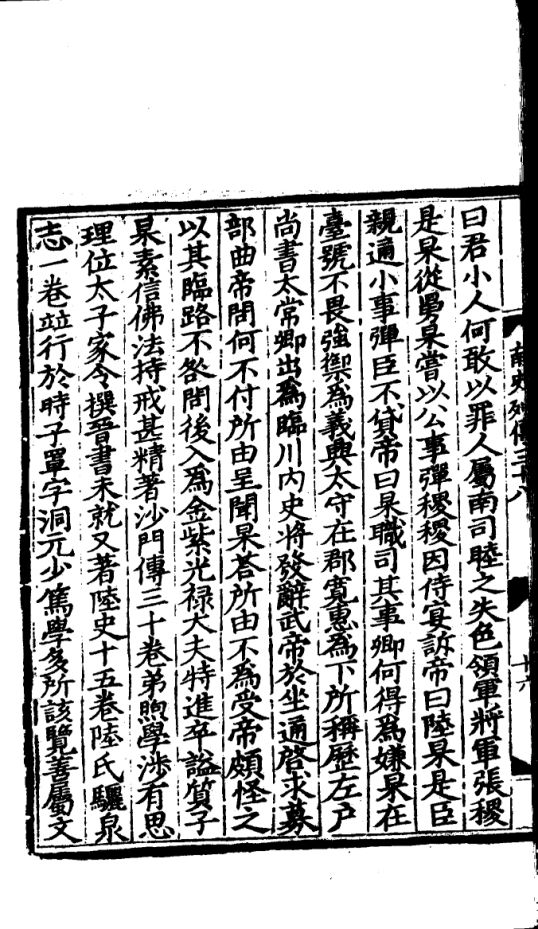 南史列傳三十八
十六
曰君小人何敢以罪人屬南司睦之失色領軍將軍張稷
是杲從舅杲嘗以公事彈稷稷因侍宴訴帝曰陸杲是臣
親通小事彈臣不貸帝曰杲職司其事卿何得爲嫌杲在
臺號不畏強禦爲義興太守在郡寬惠爲下所稱歷左户
尚書太常卿出爲臨川内史將發辭武帝於坐通啓求募
部曲帝問何不付所由呈聞杲荅所由不爲受帝頗怪之
以其臨路不咎問後入爲金紫光禄大夫特進卒謚質子
杲素信佛法持戒甚精著沙門傳三十卷弟煦學涉有思
理位太子家令撰晉書未就又著陸史十五卷陸氏驪泉
志一卷竝行於時子罩字洞元少篤學多所該覽善屬文